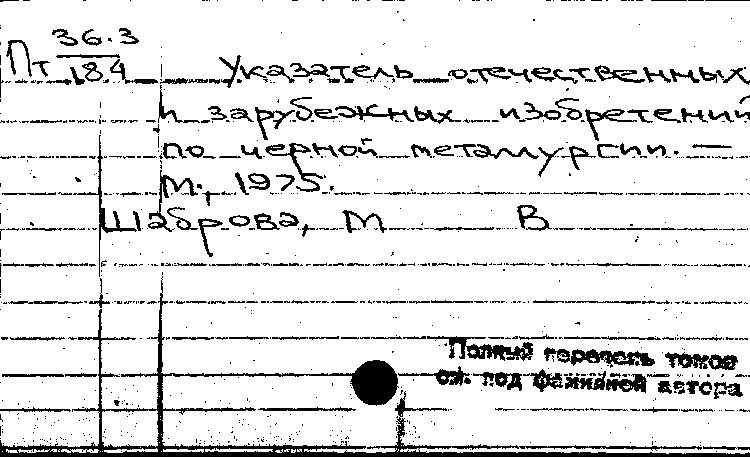 Пт 36.3
184
Указатель отечественных
и зарубежных изобретений
по черной металлургии. —
М., 1975.
Шаброва, М В
Полный перечень томов
см. под фамилией автора